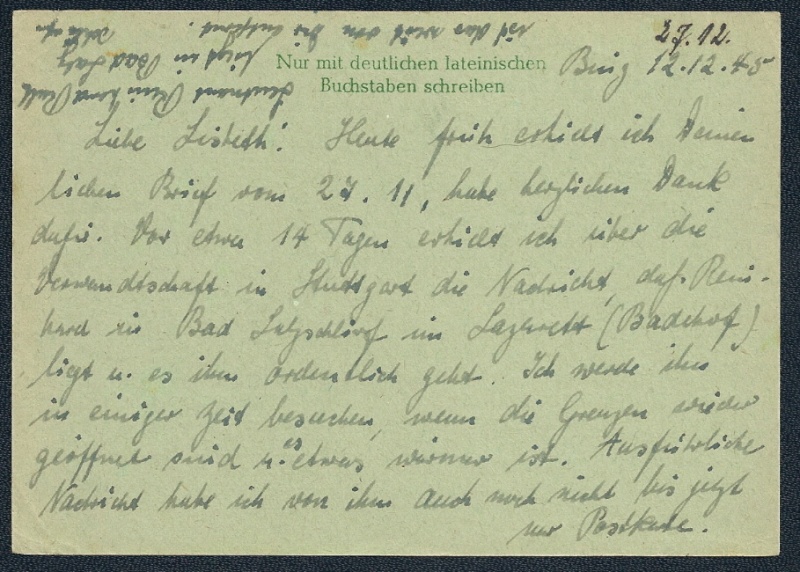 27.12.
Nur mit deutlichen lateinischen
Buchstaben schreiben
12.12.45
Liebe Lisbeth! Heute früh erhielt ich Deinen
lieben Brief vom 27.11, habe herzlichen Dank
dafür. Vor etwa 14 Tagen erhielt ich über die
Verwandtschaft in Stuttgart die Nachricht, daß Rein-
hard in Bad Salzschlirf im Lazarett (Badehof)
liegt u. es ihm ordentlich geht. Ich werde ihn
in einiger Zeit besuchen, wenn die Grenzen wieder
geöffnet sind u. es etwas wärmer ist. Ausführliche
Nachricht habe ich von ihm auch noch nicht bis jetzt
nur Postkarte.
liegt in Bad Salz
ist das weit von Dir entfernt.